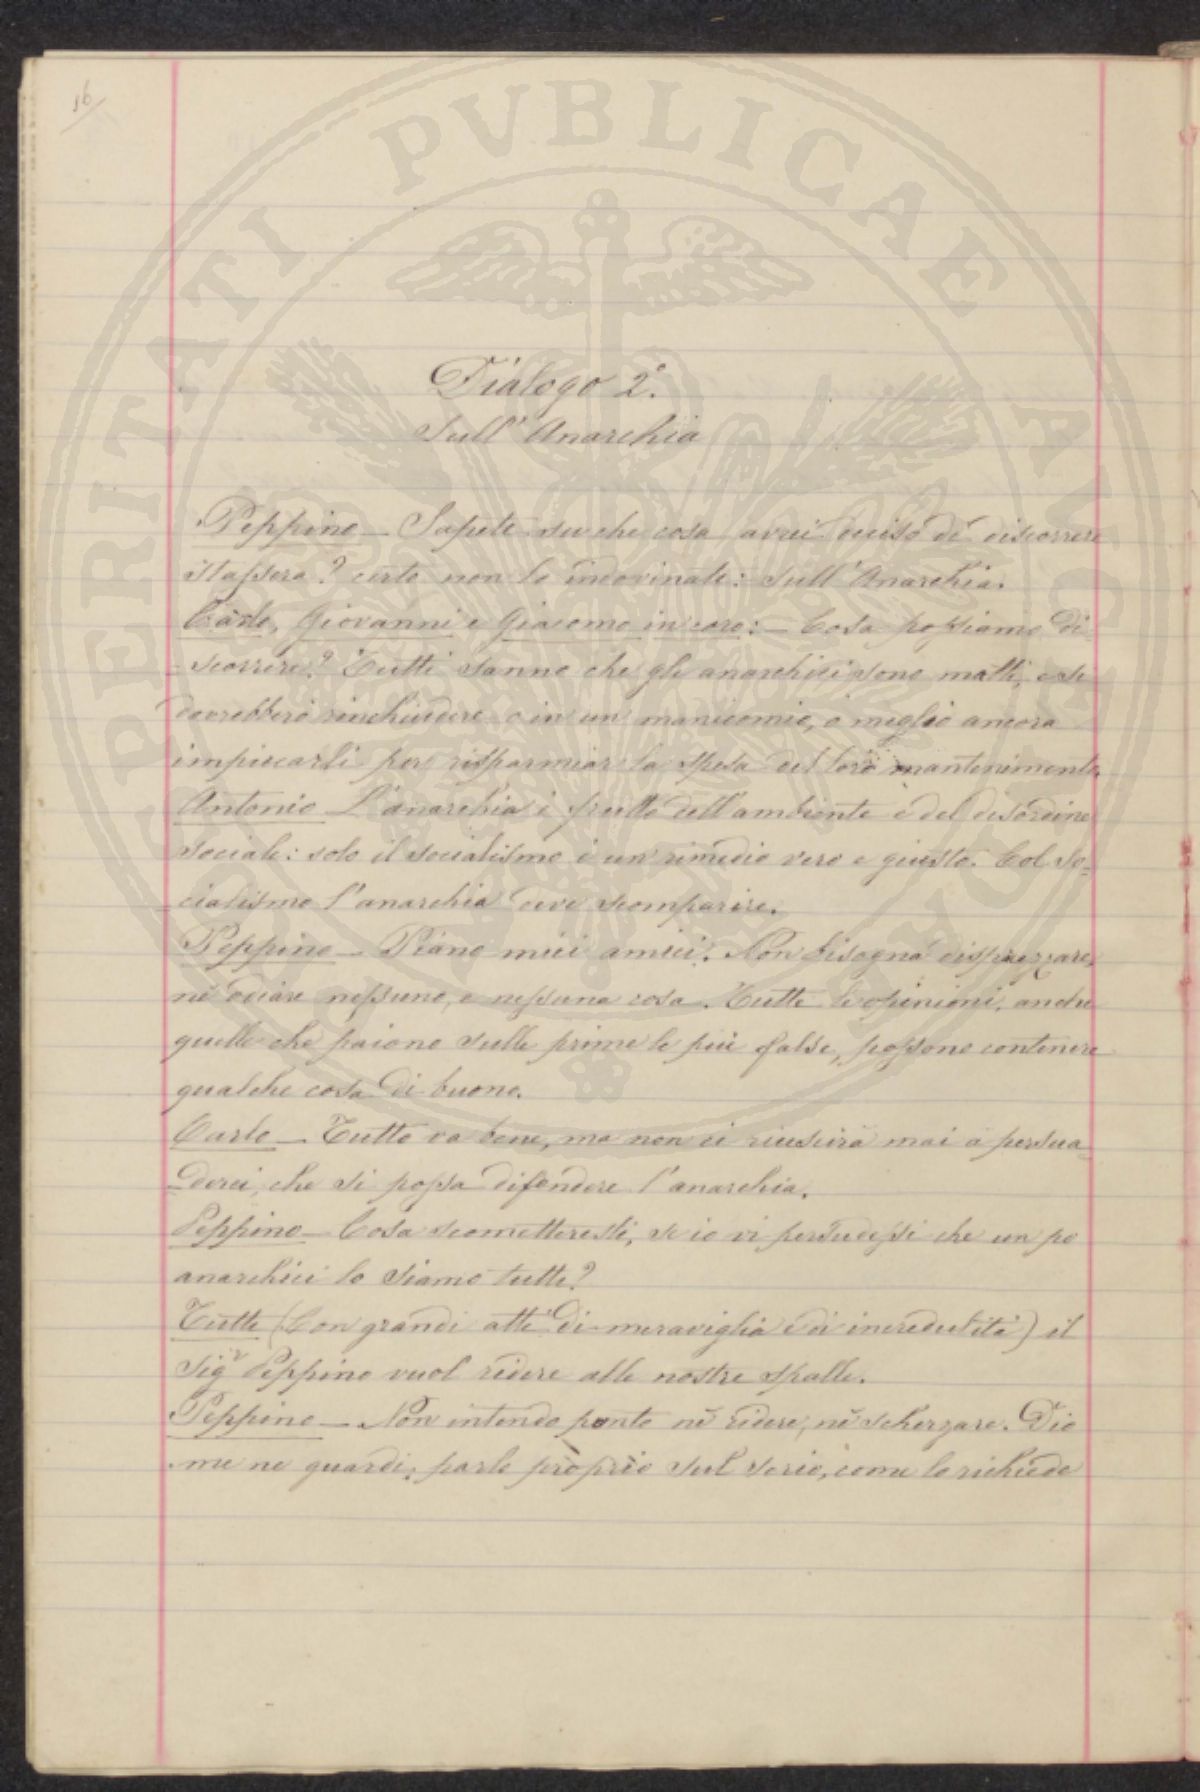 16
Dialogo 2°.
Sull'Anarchia
Peppino — Sapete su che cosa avrei deciso di discorrere
stassera? certo non lo indovinate: sull'Anarchia.
Carlo, Giovanni e Giacomo in coro: — Cosa possiamo di-
scorrere? Tutti sanno che gli anarchici sono matti, e si
dovrebbero rinchiudere o in un manicomio, o meglio ancora
impiccarli per risparmiar la spesa del loro mantenimento.
Antonio — L'anarchia è frutto dell'ambiente e del disordine
sociale: solo il socialismo è un rimedio vero e giusto. Col So-
cialismo l'anarchia deve scomparire.
Peppino — Piano miei amici. Non bisogna disprezzare,
nè odiare nessuno, e nessuna cosa. Tutte le opinioni, anche
quelle che paiono sulle prime le più false, possono contenere
qualche cosa di buono.
Carlo — Tutto va bene, ma non ci riuscirà mai a persua-
derci, che si possa difendere l'anarchia.
Peppino — Cosa scommetteresti, se io vi persudessi che un po
anarchici lo siamo tutti?
Tutti (Con grandi atti di meraviglia e di incredulità) il
Sigr Peppino vuol ridere alle nostre spalle.
Peppino — Non intendo punto nè ridere, nè scherzare. Dio
me ne guardi; parlo proprio sul serio, come lo richiede
PERITATI PVBLICAE